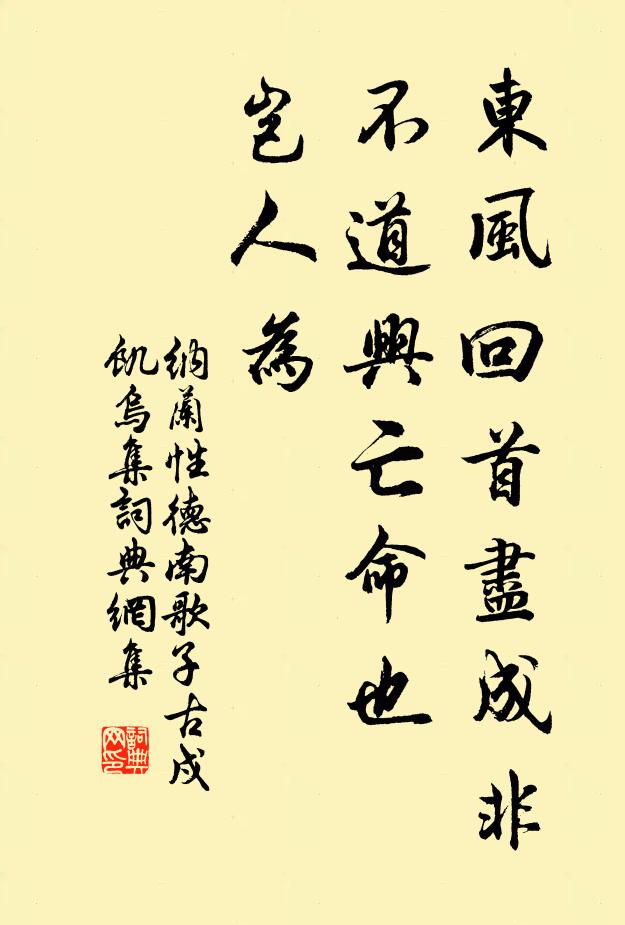 東風回首盡成非
不道興亡命也
豈人為
納蘭性德南歌子古戍
飢烏集詞典網集
詞典
网印